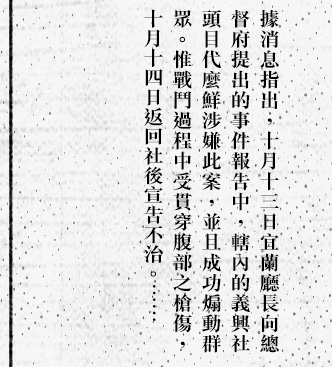 據消息指出，十月十三日宜蘭廳長向總
督府提出的事件報告中，轄內的義興社
頭目代麼鮮涉嫌此案，並且成功煽動群
眾。惟戰鬥過程中受貫穿腹部之槍傷，
十月十四日返回社後宣告不治。………